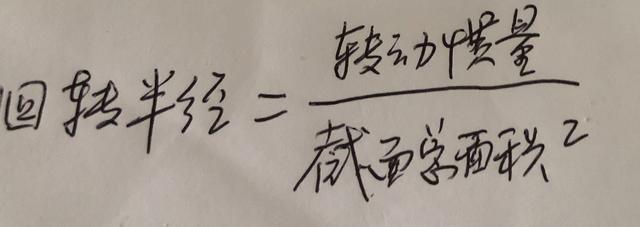 回转半径 = 转动惯量 / 截面总面积²